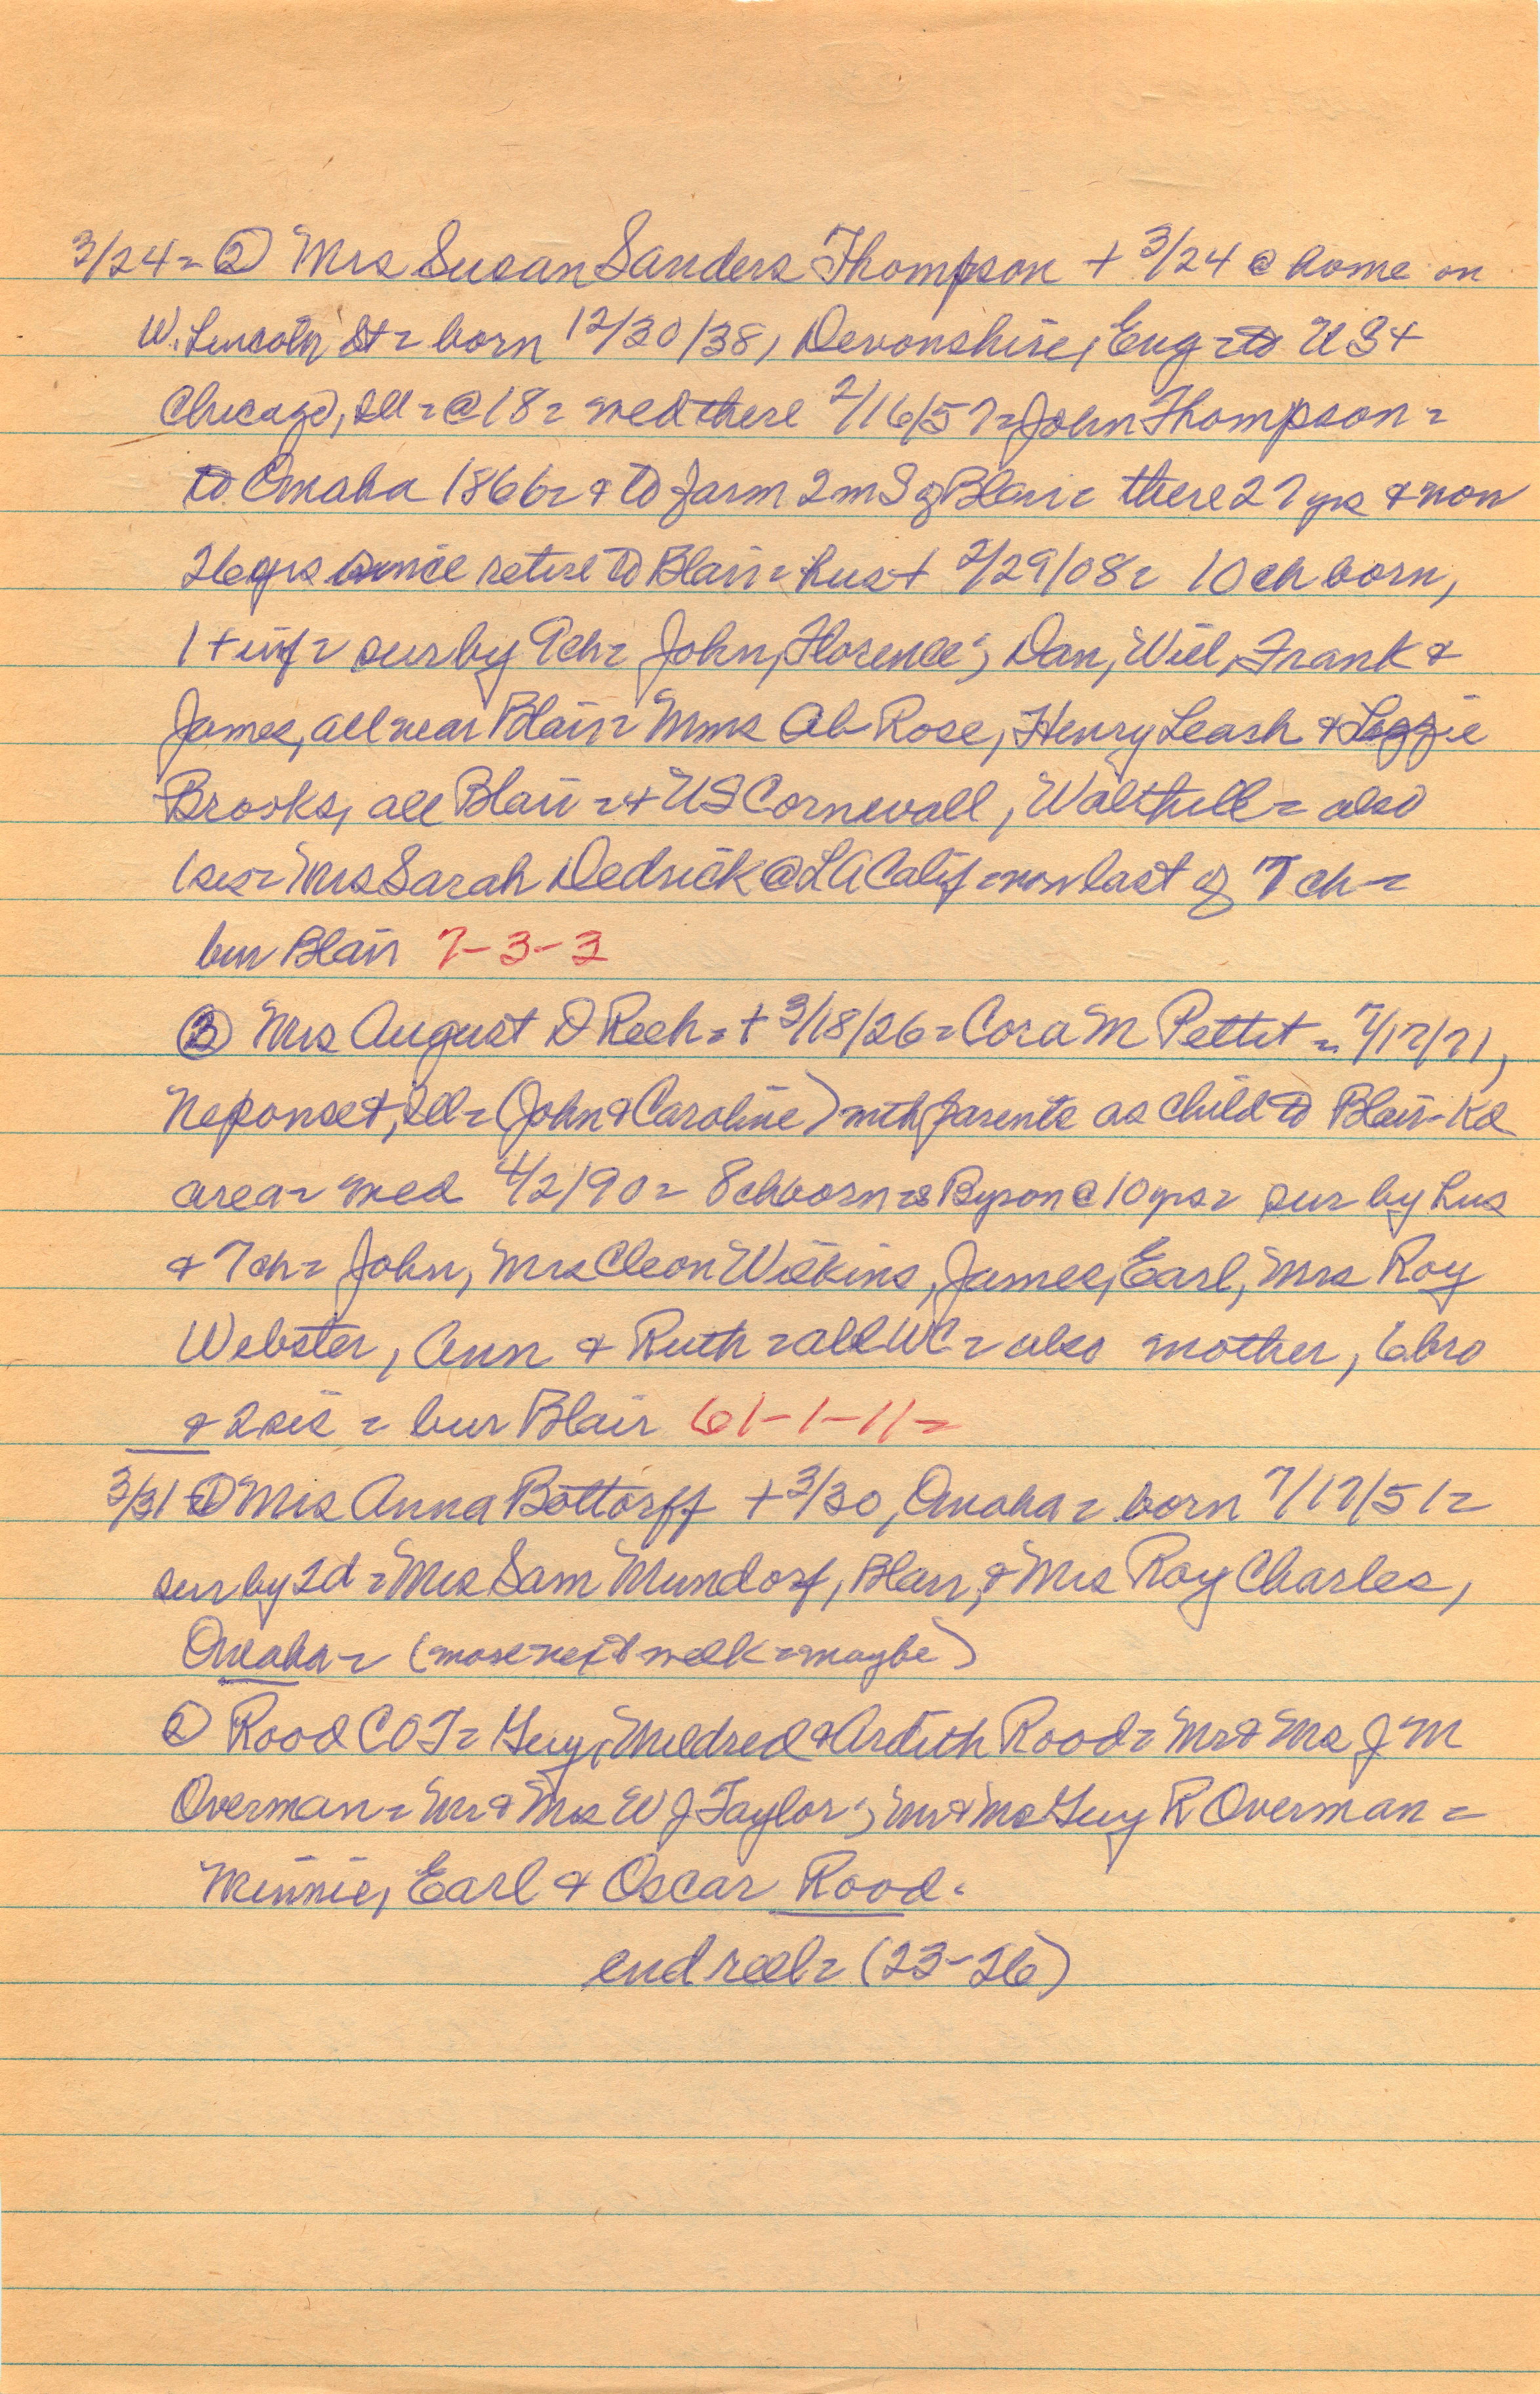 3/24 = ② Mrs Susan Sanders Thompson + 3/24 @ home on
W. Lincoln St = born 12/30/38, Devonshire, Eng = to US +
Chicago, Ill = @ 18 = wed there 2/16/57 = John Thompson =
to Omaha 1866 = & to farm 2 m S of Blair = there 27 yrs & now
26 yrs since retire to Blair = hus + 2/29/08 = 10 ch born,
1 + inf = sur by 9 ch = John, Florence; Dan, Will, Frank &
James, all near Blair = Mms Ab Rose, Henry Leash & Lizzie
Brooks, all Blair = & US Cornwall, Walthill = also
1 sis = Mrs Sarah Dedrick @ LA Calif = now last of 7 ch =
bur Blair 7-3-3
③ Mrs August D Reeh = + 3/18/26 = Cora M Pettit = 7/17/71,
Neponset, Ill = (John & Caroline) with parents as child to Blair-Kd
area = wed 4/2/90 = 8 ch born = & Byron @ 10 yrs = sur by hus
& 7 ch = John, Mrs Cleon Wilkins, James, Earl, Mrs Roy
Webster, Ann & Ruth = all WC = also mother, 6 bro
& 2 sis = bur Blair 61-1-11 =
3/31 ① Mrs Anna Bottorff + 3/30, Omaha = born 7/17/51 =
sur by 2d = Mrs Sam Mundorf, Blair, & Mrs Roy Charles,
Omaha = (more next week = maybe)
② Rood COT = Guy, Mildred & Ardith Rood = Mr & Ms J M
Overman = Mr & Mrs W J Taylor; Mr & Ms Guy R Overman =
Minnie, Earl & Oscar Rood.
end reel = (23-26)